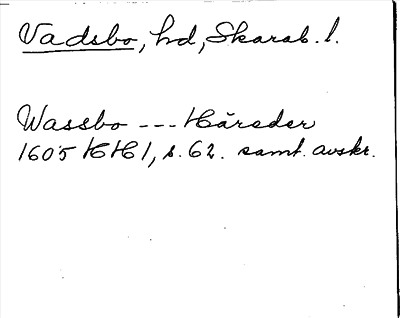 Vadsbo, hd, Skarab. l.
Wassbo --- Häreder
1605 HH 1, s. 62. samt. avskr.